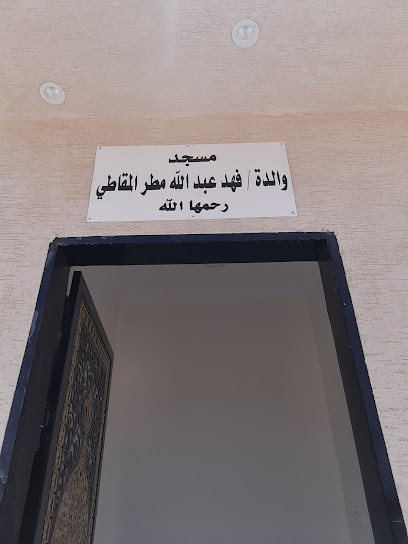 مسجد
والدة / فهد عبد الله مطر المقاطي
رحمها الله